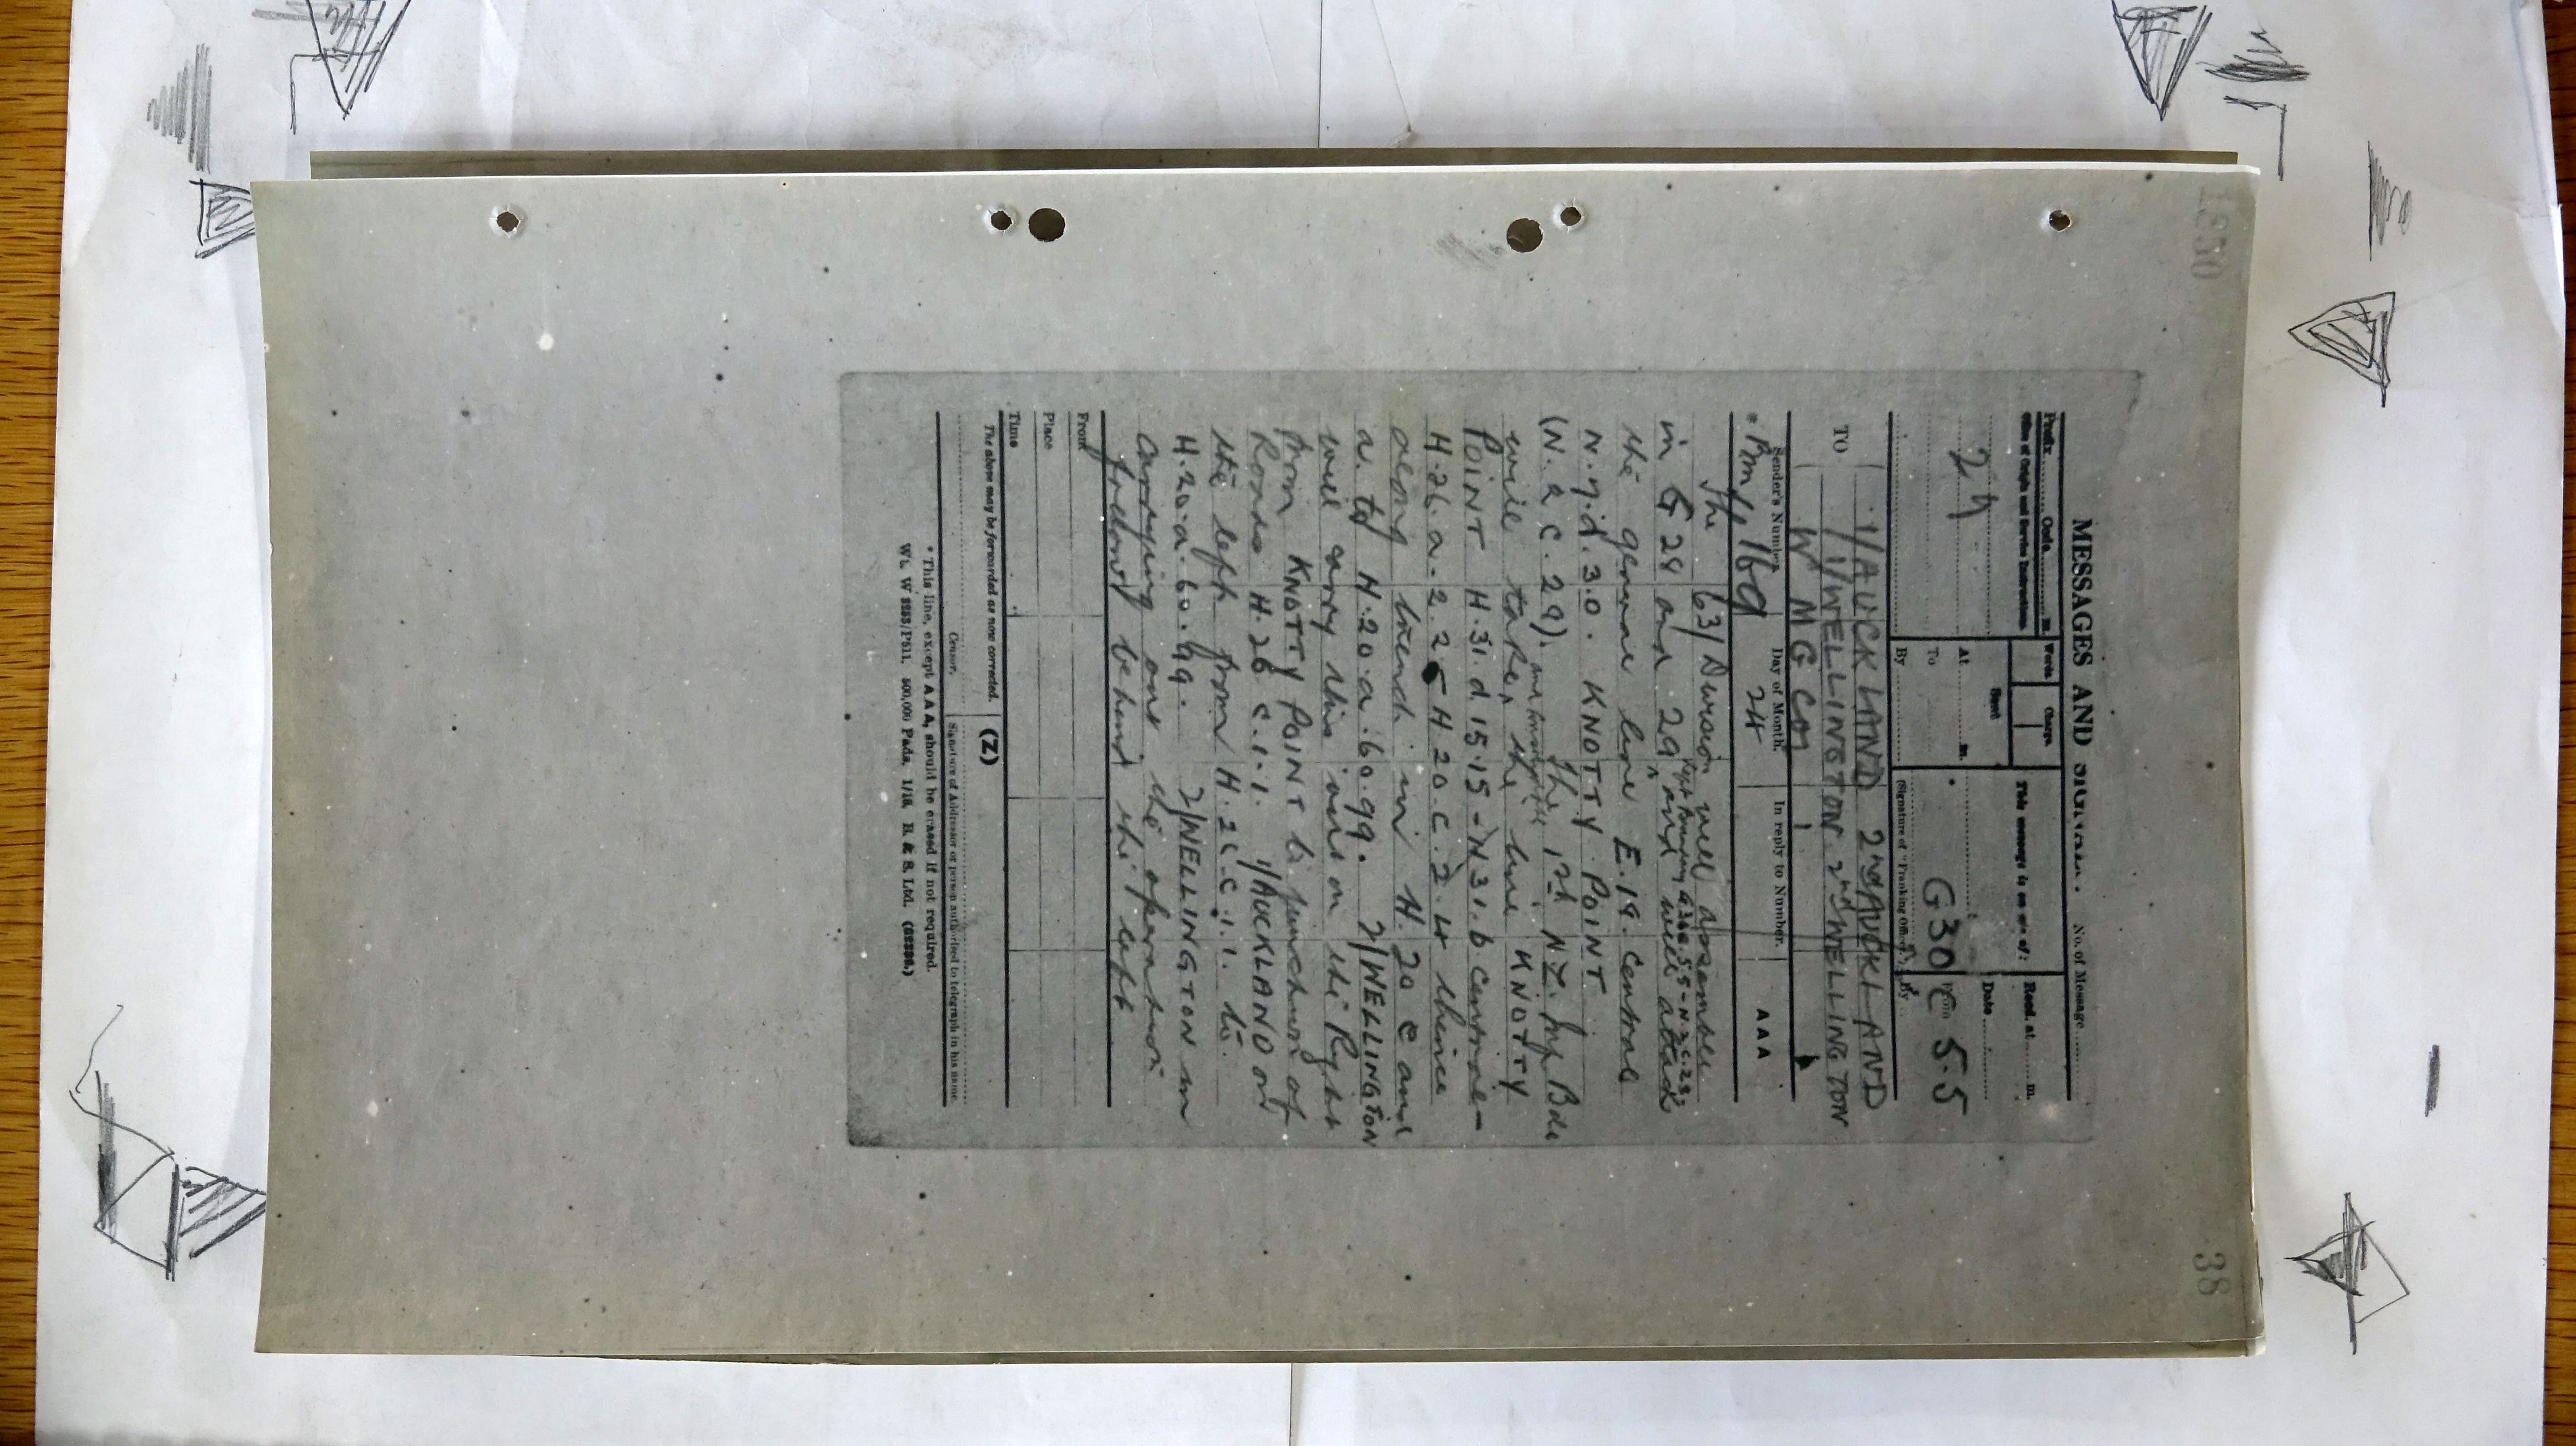 1350
38
MESSAGES AND No. of Message
Prefix Code m. Words Charge. This message is on a/c of: Recd. at m.
Office of Origin and Service Instructions. Sent Date
29 At m. G30 C 5.5
To From
By (Signature of "Franking Officer") By
TO 1/AUCKLAND 2nd AUCKLAND
1/WELLINGTON 2nd WELLINGTON
W MG Coy
Sender's Number. Day of Month. In reply to Number. AAA
BM/169 24
The 63/ Division will assemble
in G 28 and 29 and will attack
the general line E.19. Central
N.7.d.3.0. KNOTTY POINT
(N.2 C.29). The 1st N.Z. Inf Bde
will take, the line KNOTTY
POINT H.31.d.15.15 - H31.b central -
H.26.a.2.2 - H 20.c.2.4 thence
along trench in H. 20 c and
a. to H.20.a.60.99. 2/WELLINGTON
will carry this out on the Right
from KNOTTY POINT to junction of
Roads H.26 c.1.1. 1/AUCKLAND on
the left from H.26.c.1.1. to
H.20.a.60.99. 2/WELLINGTON in
carrying out the operation
behind the left
From
Place
Time
The above may be forwarded as now corrected. (Z)
Censor. Signature of Addressor or person authorised to telegraph in his name.
* This line, except AAA, should be erased if not required.
Wt. W 3253/P511. 500,000 Pads. 1/18. B. & S. Ltd.